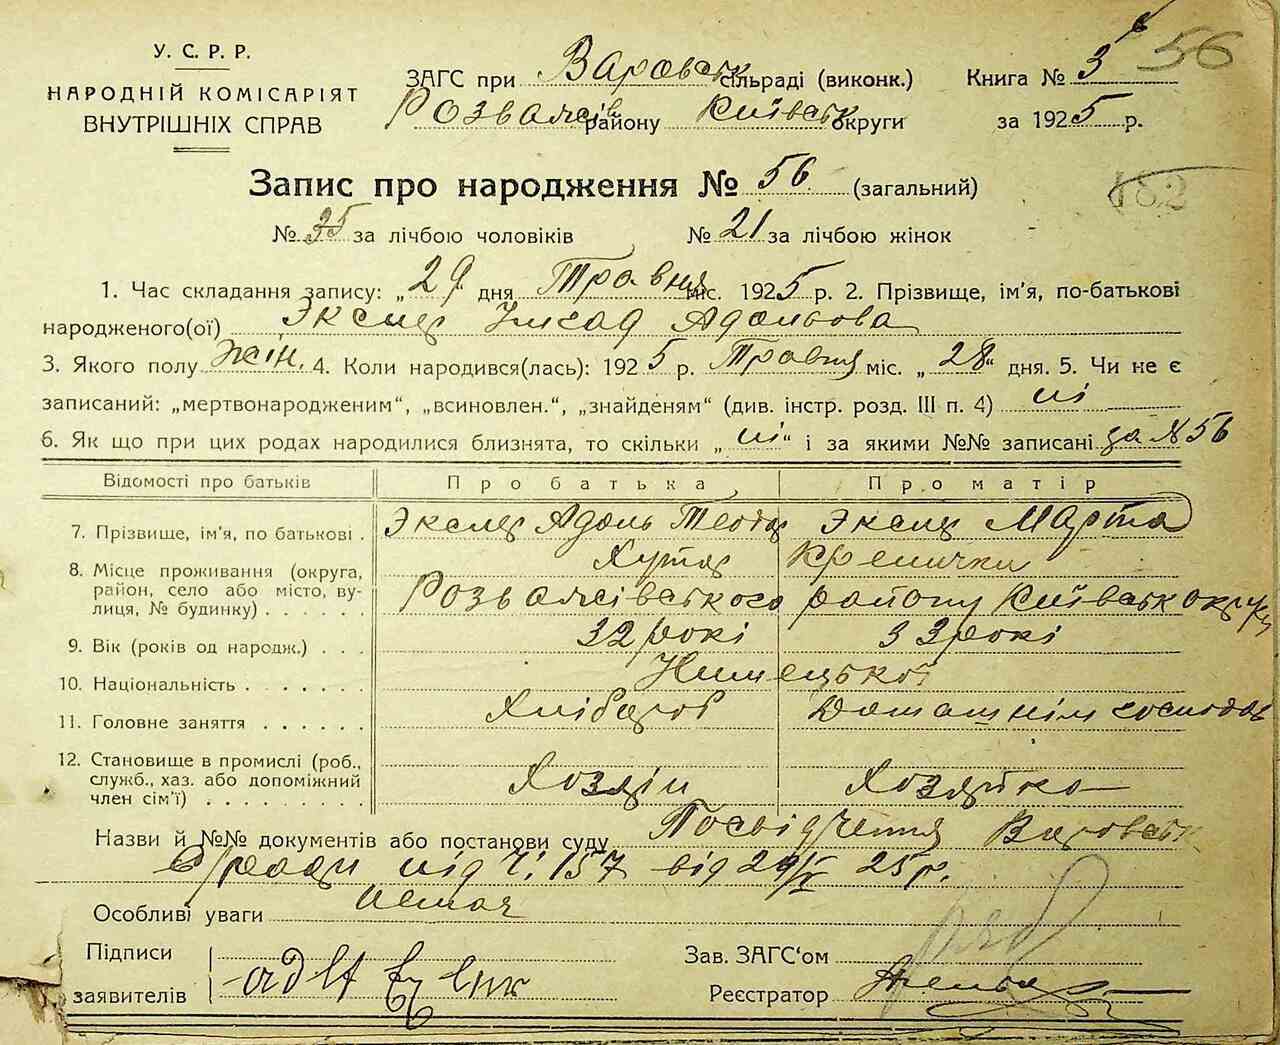 56
У. С. Р. Р.
НАРОДНІЙ КОМІСАРІЯТ
ВНУТРІШНІХ СПРАВ
ЗАГС при Варовськ сільраді (виконк.) Книга № 3
Розважів району Київськ округи за 1925 р.
Запис про народження № 56 (загальний)
182
№ 35 за лічбою чоловіків № 21 за лічбою жінок
1. Час складання запису: „29" дня Травня міс. 1925 р. 2. Прізвище, ім'я, по-батькові
народженого(ої) Адольова
3. Якого полу жін. 4. Коли народився(лась): 1925 р. Травня міс. „28" дня. 5. Чи не є
записаний: „мертвонародженим", „всиновлен.", „знайденям" (див. інстр. розд. III п. 4) ні
6. Як що при цих родах народилися близнята, то скільки „ні" і за якими №№ записані за № 56
Відомості про батьків Про батька Про матір
7. Прізвище, ім'я, по батькові . Адоль Марта
8. Місце проживання (округа, район, село або місто, вулиця, № будинку) . . . . . Хутар
Розважівського району Київськ округи
9. Вік (років од народж.) . . . 32 рокі 33 рокі
10. Національність . . . . . . . Нимецької
11. Головне заняття . . . . . Хлібороб Домашнім господар
12. Становище в промислі (роб., служб., хаз. або допоміжний член сім'ї) . . . . . . . . . Хозяін Хозяйка
Назви й №№ документів або постанови суду Посвідчення Варовськ
с/ради під Ч. 157 від 29/V 25 р.
Особливі уваги Немає
Підписи
заявителів
Зав. ЗАГС'ом
Реєстратор